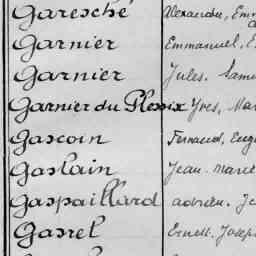 Garesché Alexandre, Emm
Garnier Emmanuel, E
Garnier Jules. Samu
Garnier du Plessix Yves, Mar
Gascoin Fernand, Eug
Gaslain Jean-Marie
Gaspaillard Adrien. Je
Gasrel Ernest. Josep